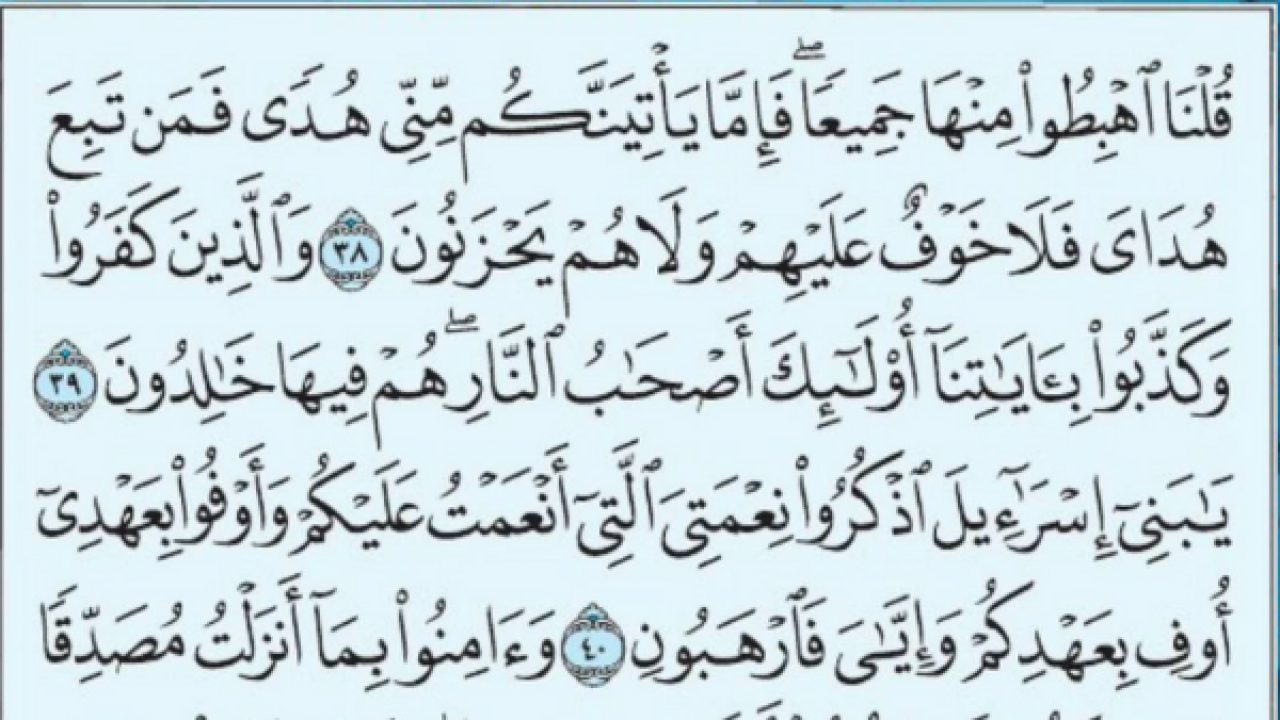 قُلْنَا ٱهْبِطُوا۟ مِنْهَا جَمِيعًا ۖ فَإِمَّا يَأْتِيَنَّكُم مِّنِّى هُدًى فَمَن تَبِعَ
هُدَاىَ فَلَا خَوْفٌ عَلَيْهِمْ وَلَا هُمْ يَحْزَنُونَ ٣٨ وَٱلَّذِينَ كَفَرُوا۟
وَكَذَّبُوا۟ بِـَٔايَـٰتِنَآ أُو۟لَـٰٓئِكَ أَصْحَـٰبُ ٱلنَّارِ ۖ هُمْ فِيهَا خَـٰلِدُونَ ٣٩
يَـٰبَنِىٓ إِسْرَـٰٓءِيلَ ٱذْكُرُوا۟ نِعْمَتِىَ ٱلَّتِىٓ أَنْعَمْتُ عَلَيْكُمْ وَأَوْفُوا۟ بِعَهْدِىٓ
أُوفِ بِعَهْدِكُمْ وَإِيَّـٰىَ فَٱرْهَبُونِ ٤٠ وَءَامِنُوا۟ بِمَآ أَنزَلْتُ مُصَدِّقًا